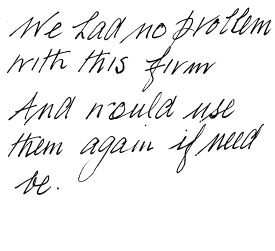 We had no problem
with this firm
And would use
them again if need
be.